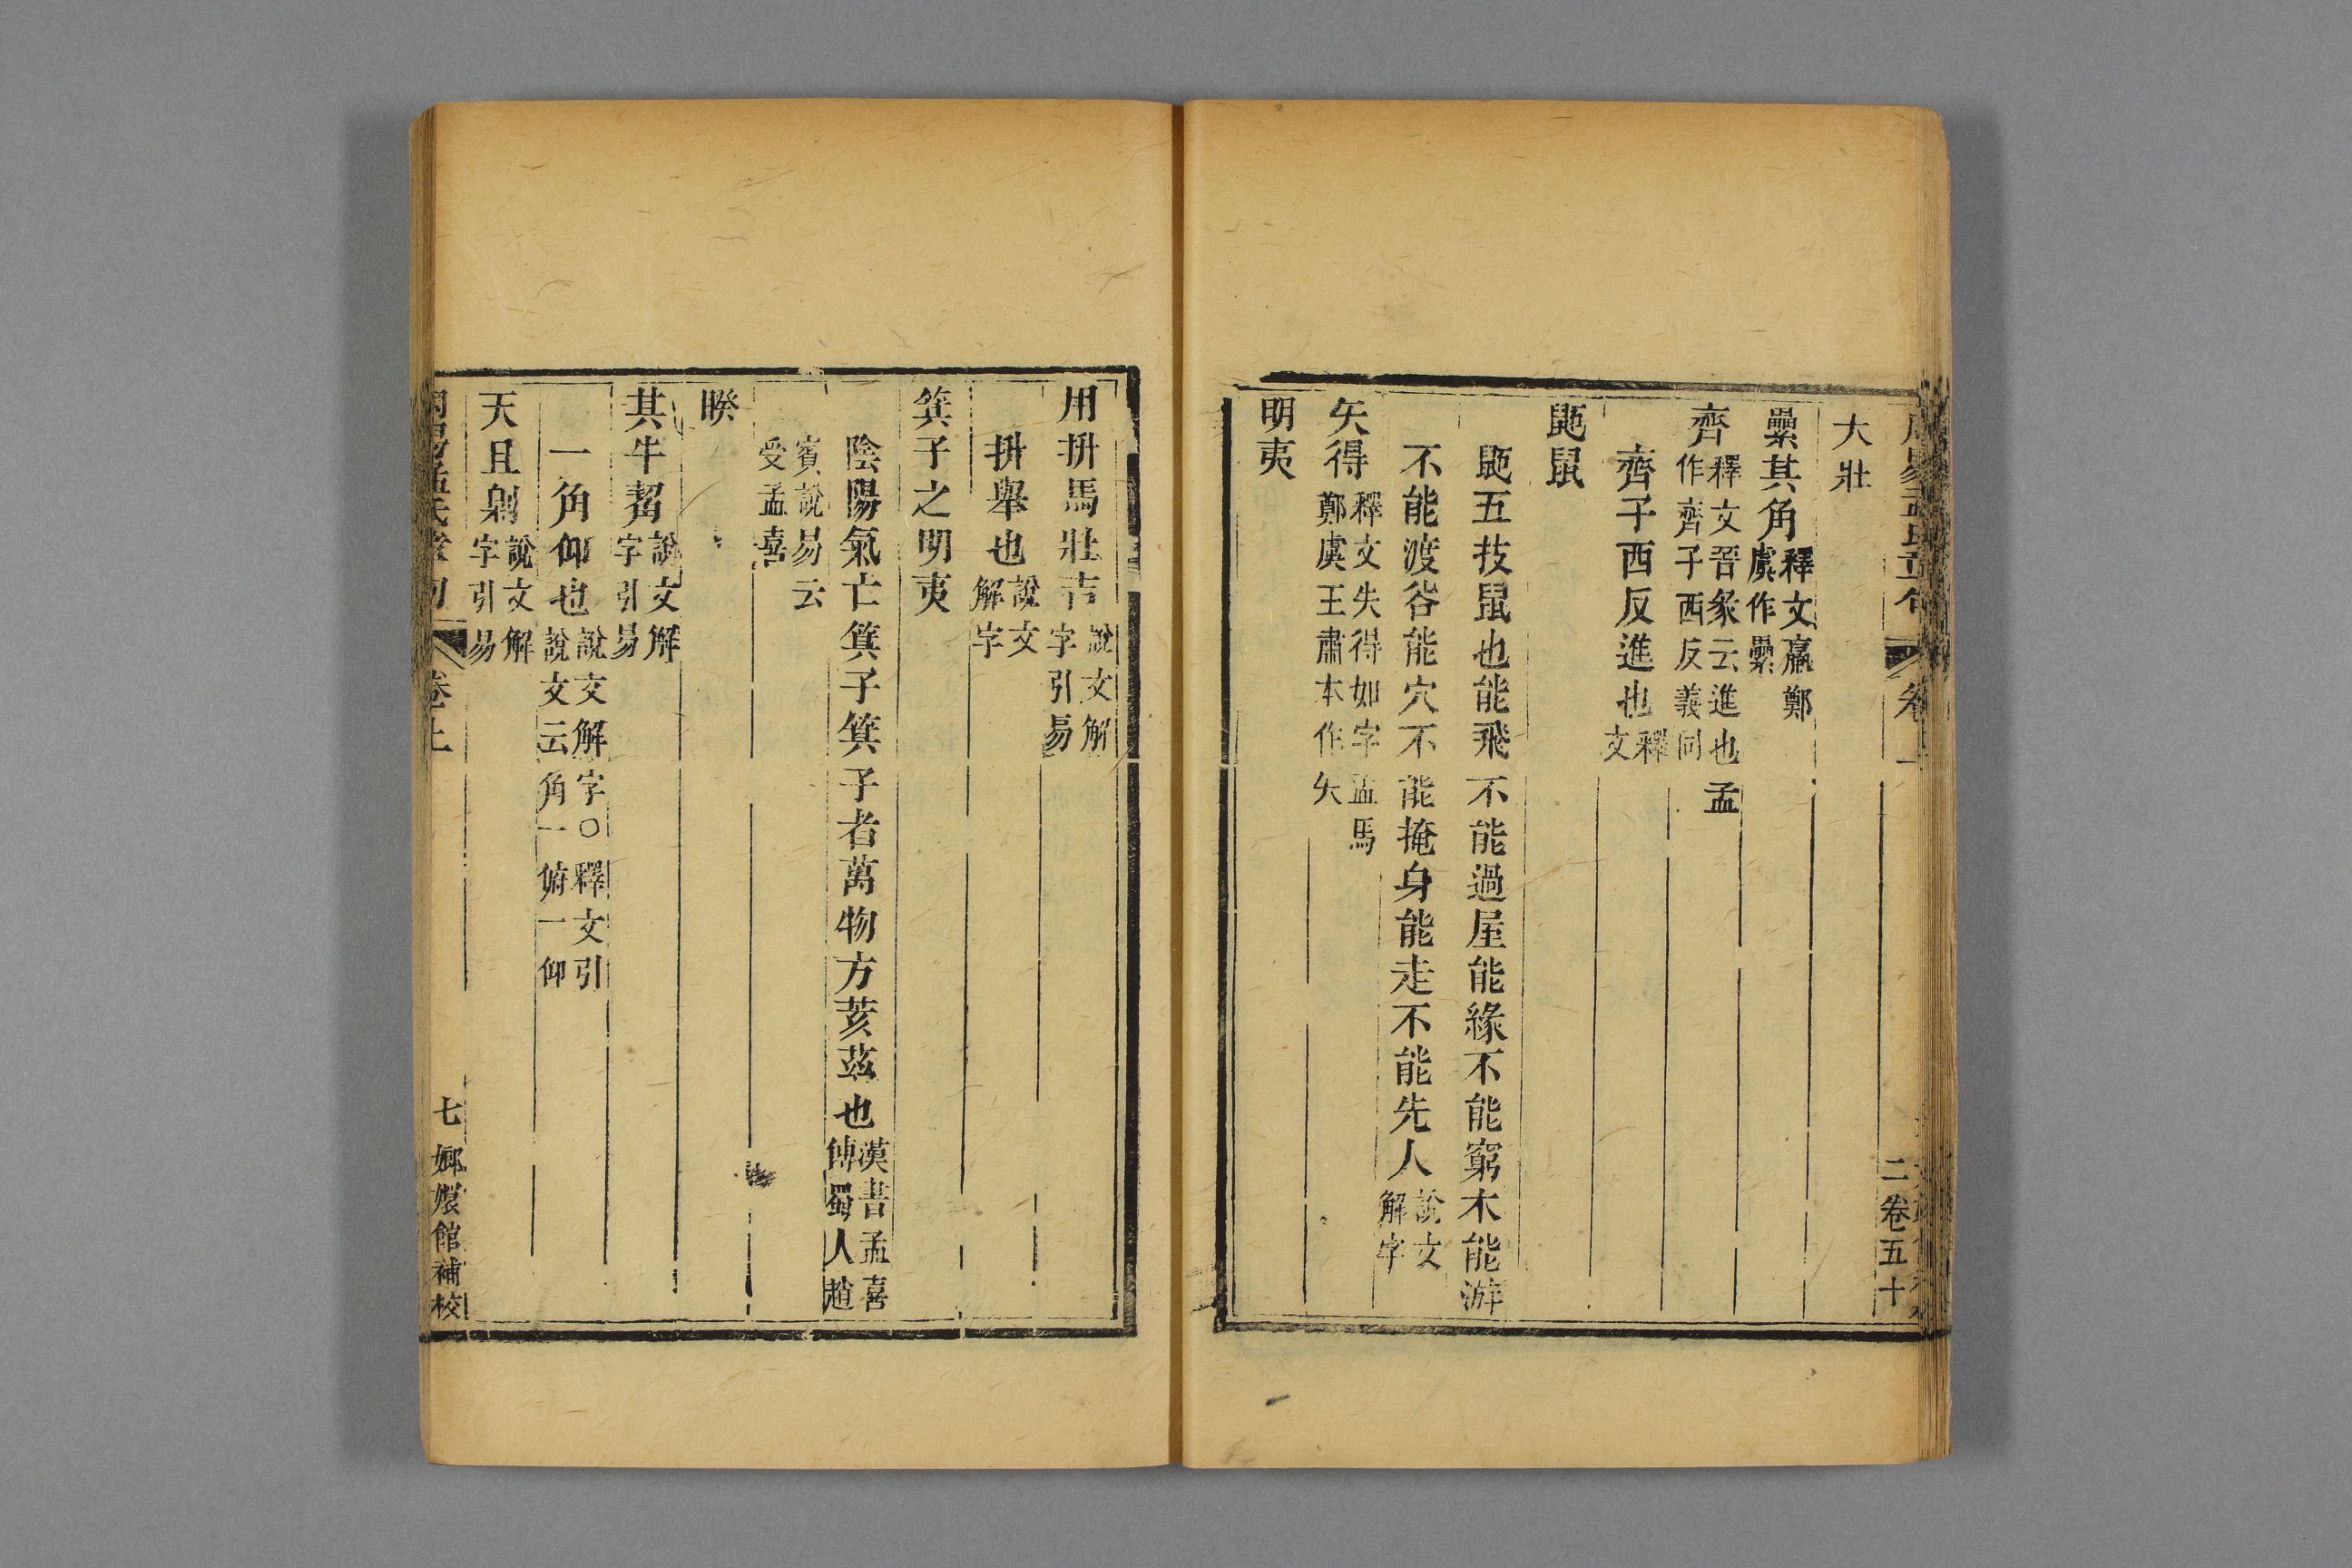 大壯
纍其角釋文羸鄭
虞作纍
齊釋文晉彖云進也孟
作齊子西反義同
齊子西反進也釋
文
鼫鼠
鼫五技鼠也能飛不能過屋能緣不能窮木能游
不能渡谷能穴不能掩身能走不能先人說文
解字
矢得釋文失得如字孟馬
鄭虞王肅本作矢
明夷
二卷五十
用抍馬壯吉說文解
字引易
抍舉也說文
解字
箕子之明夷
陰陽氣亡箕子箕子者萬物方荄茲也漢書孟喜
傳蜀人趙
賓說易云
受孟喜
睽
其牛觢說文解
字引易
一角仰也說文解字○釋文引
說文云角一俯一仰
天且劓說文解
字引易
周易孟氏章句 卷上 七 嫏嬛館補校